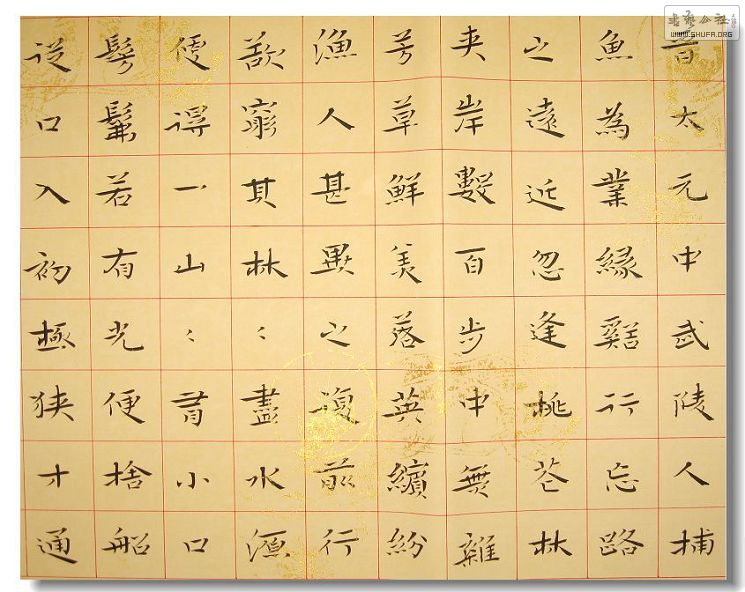 晉太元中武陵人捕
魚為業緣谿行忘路
之遠近忽逢桃花林
夾岸數百步中無雜
芳草鮮美落英繽紛
漁人甚異之復前行
欲窮其林〻盡水源
便得一山〻有小口
髣髴若有光便捨船
從口入初極狹才通
书艺公社
WWW.SHUFA.ORG